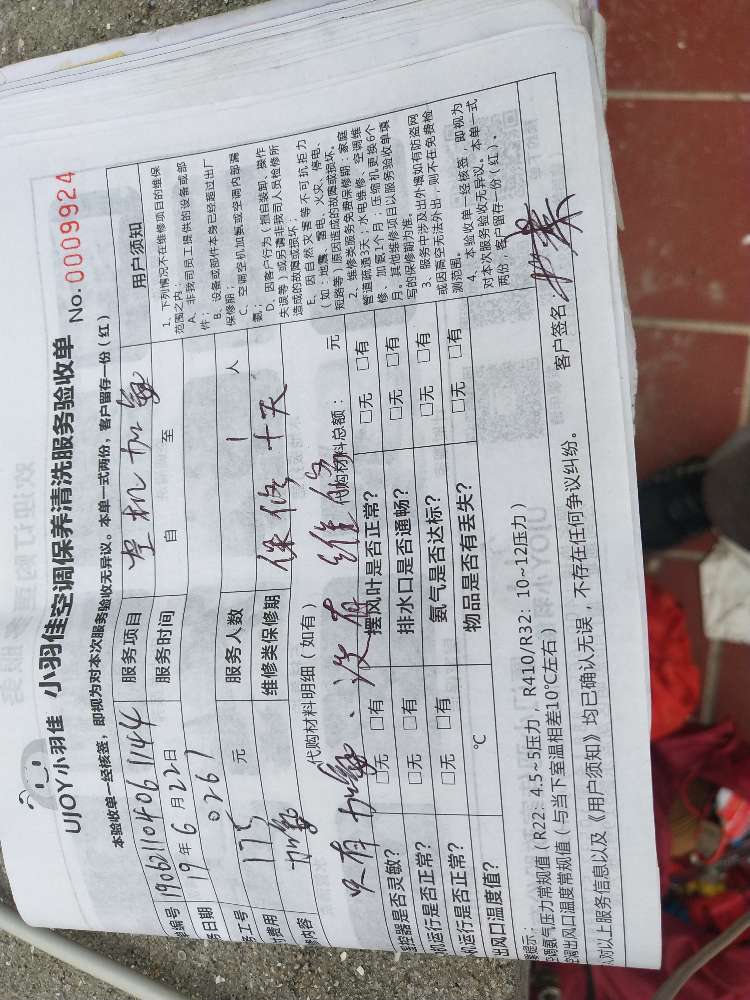 UJOY小羽佳 小羽佳空调保养清洗服务验收单 No.0009924
本验收单一经核签，即视为对本次服务验收无异议。本单一式两份，客户留存一份（红）
单编号 190621104061144 服务项目 空机加氨
务日期 19年6月22日 服务时间 自 至
务工号 0267
费用 175 元 服务人数 1 人
修内容 加氨 维修类保修期 保修十天
代购材料明细（如有） 代购材料总额： 元
只有加氨、没有维修
遥控器是否灵敏？ □无 □有 摆风叶是否正常？ □无 □有
机运行是否正常？ □无 □有 排水口是否通畅？ □无 □有
机运行是否正常？ □无 □有 氨气是否达标？ □无 □有
出风口温度值？ ℃ 物品是否有丢失？ □无 □有
用户须知
1、下列情况不在维修项目的维保
范围之内：
A、非我司员工提供的设备或部
件；
B、设备或部件本身已经超过出厂
保修期；
C、空调空机加氨或空调内部漏
氨；
D、因客户行为（擅自装卸、操作
失误等）或另请非我司人员检修所
造成的故障或损坏；
E、因自然灾害等不可抗拒力
（如：地震、雷电、火灾、停电、
短路等）原因造成的故障或损坏。
2、维修类服务免费保修期：家庭
管道疏通3天；水电维修、空调维
修、加氨1个月；压缩机更换6个
月。其他维修项目以服务验收单填
写的保修期为准。
3、服务中涉及出外墙如有防盗网
或因高空无法外出，则不在免费检
测范围。
4、本验收单一经核签，即视为
对本次服务验收无异议。本单一式
两份，客户留存一份（红）。
提示：
空调氨气压力常规值（R22：4.5~5压力，R410/R32：10~12压力）
空调出风口温度常规值（与当下室温相差10℃左右）
人对以上服务信息以及《用户须知》均已确认无误，不存在任何争议纠纷。
客户签名：